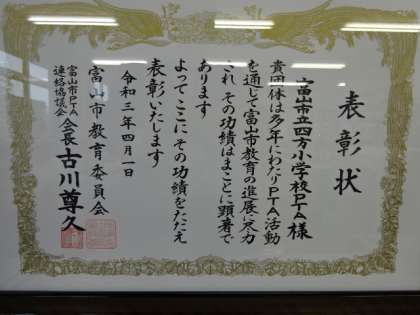 表彰状
富山市立四方小学校PTA様
貴団体は多年にわたりPTA活動
を通して富山市教育の進展に尽力
され その功績はまことに顕著で
あります
よってここにその功績をたたえ
表彰いたします
令和三年四月一日
富山市教育委員会
富山市PTA
連絡協議会 会長 古川尊久